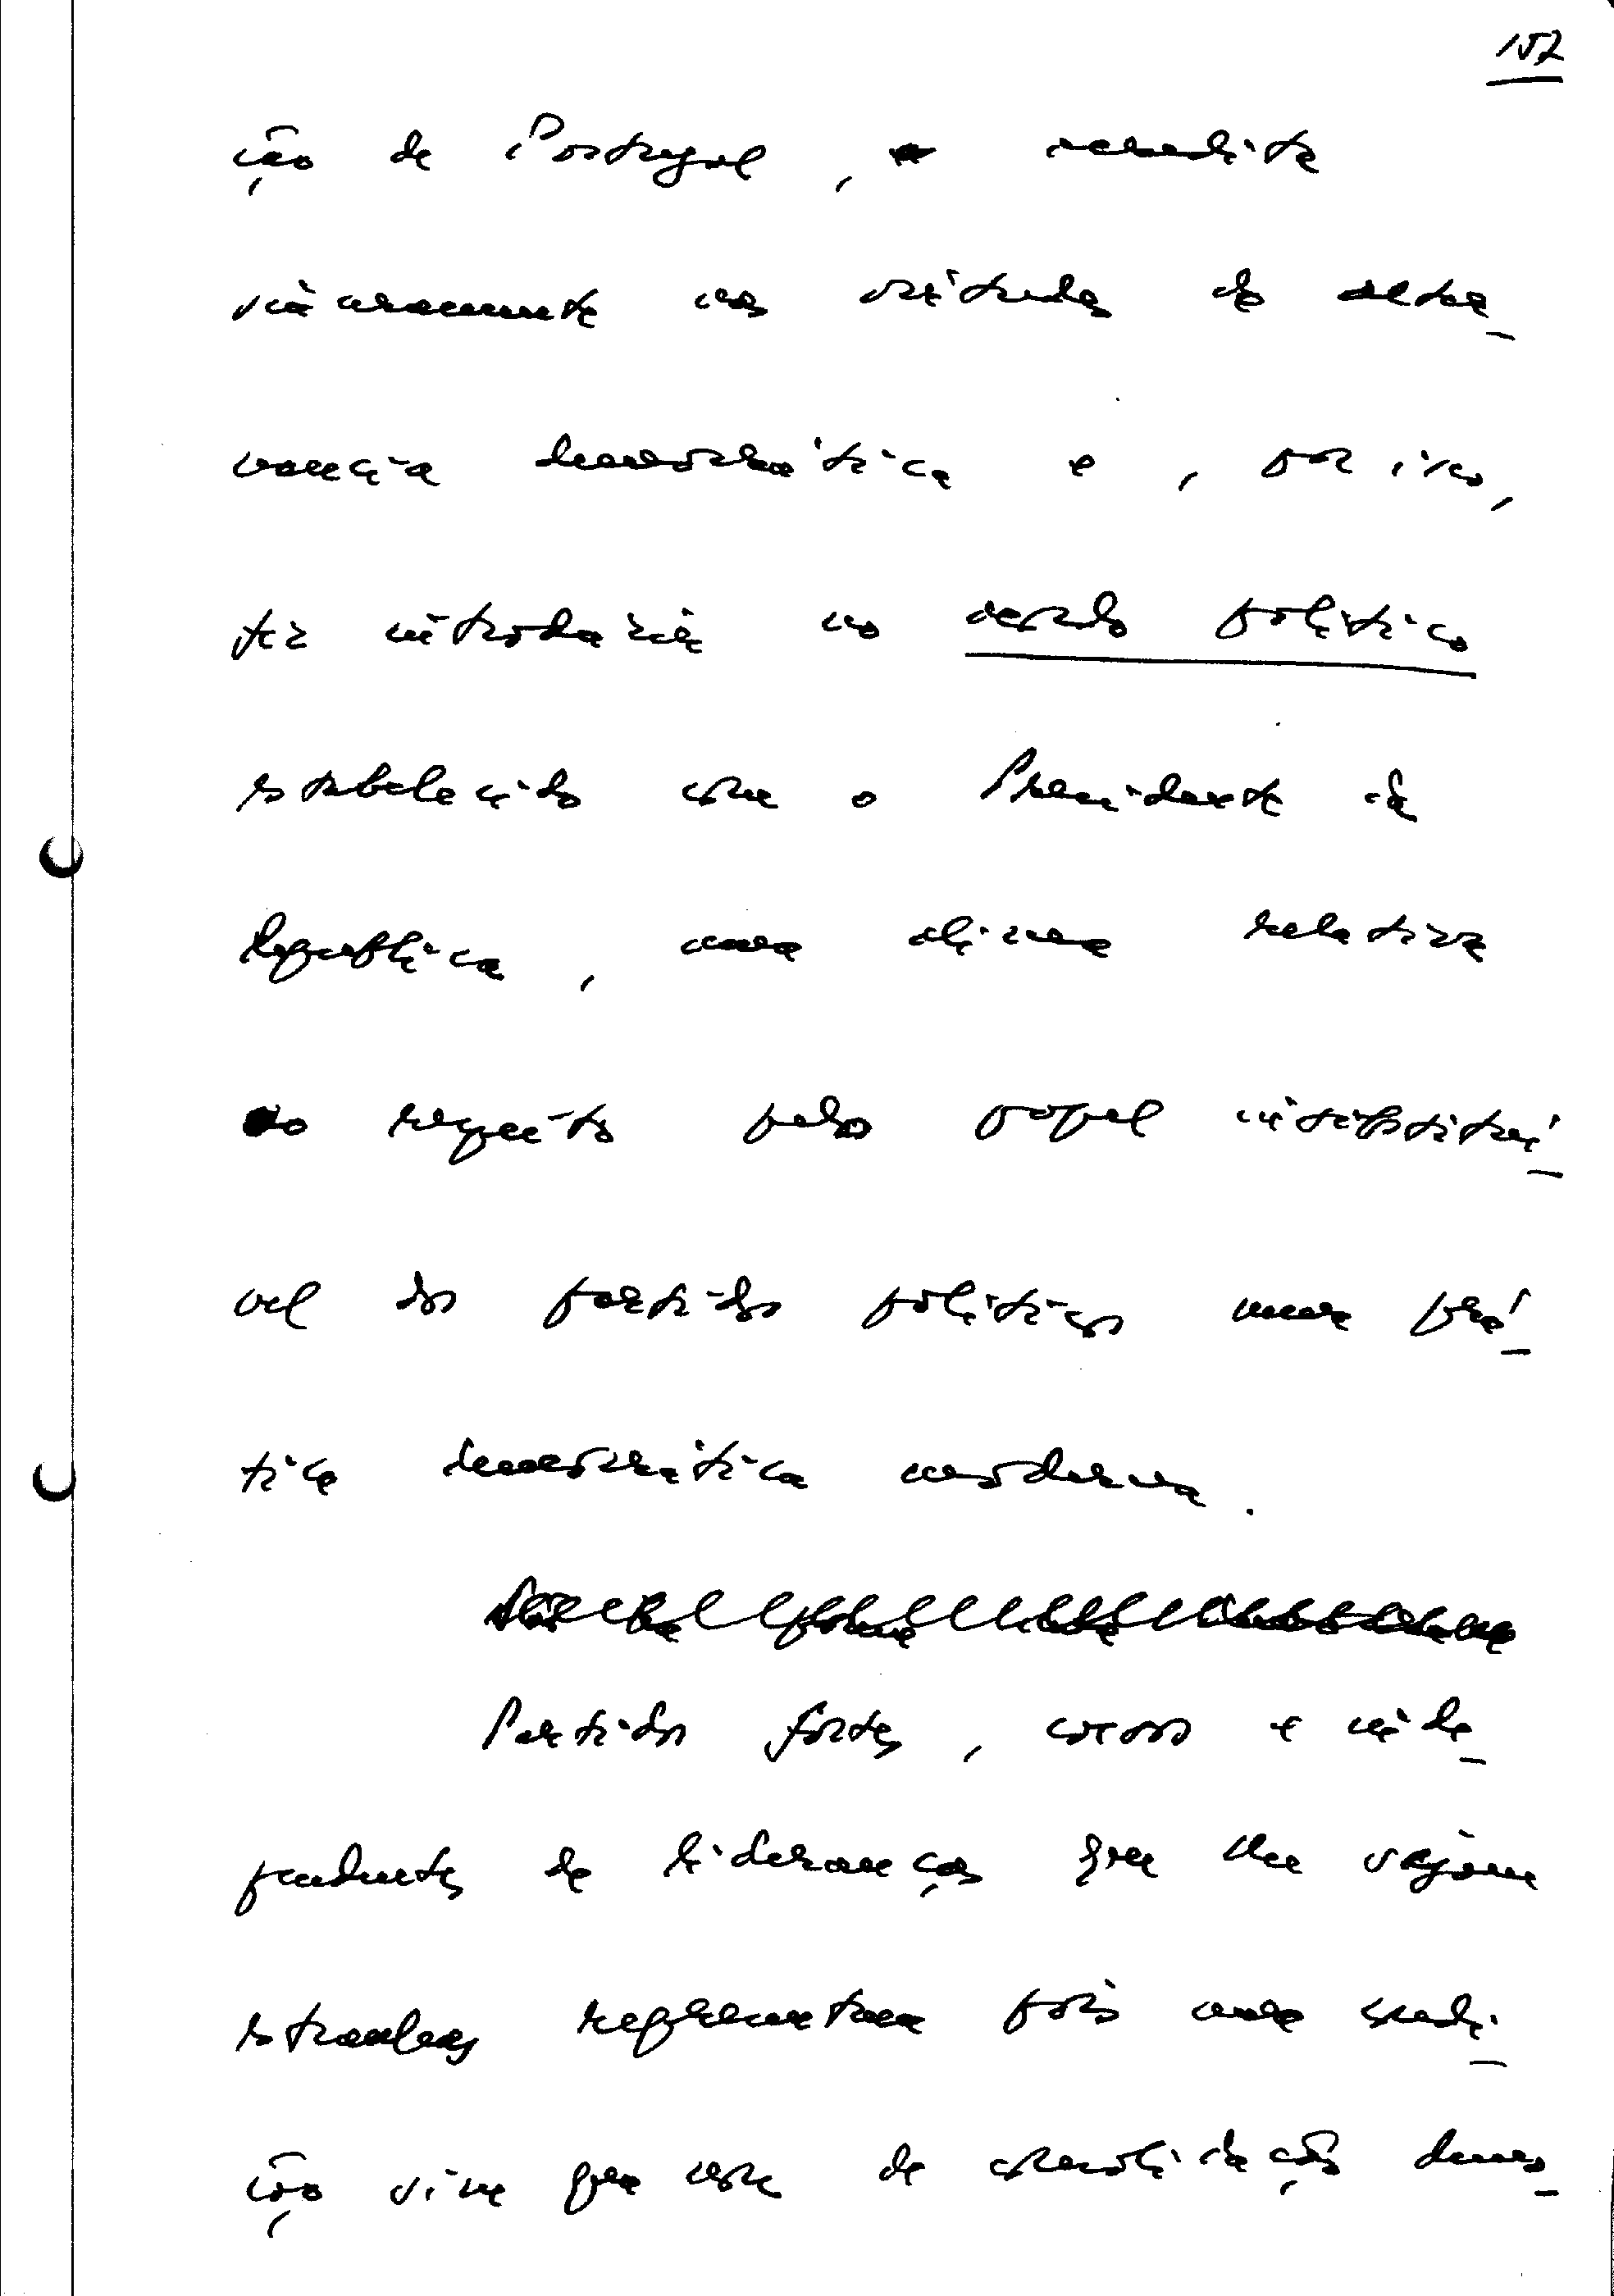 152
ição de Portugal, acredita
sinceramente nas virtudes da alter_
nancia democrática e, por isso,
fez introduzir no acordo político
estabelecido com o Presidente da
República, uma alinea relativa
ao respeito pelo papel insubstituí_
vel dos partidos políticos numa prá_
tica democrática moderna.
Partidos fortes, coesos e inde_
pendentes de lideranças que lhe sejam
estranhas representam pois uma condi_
ção sine qua non de consolidação demo_